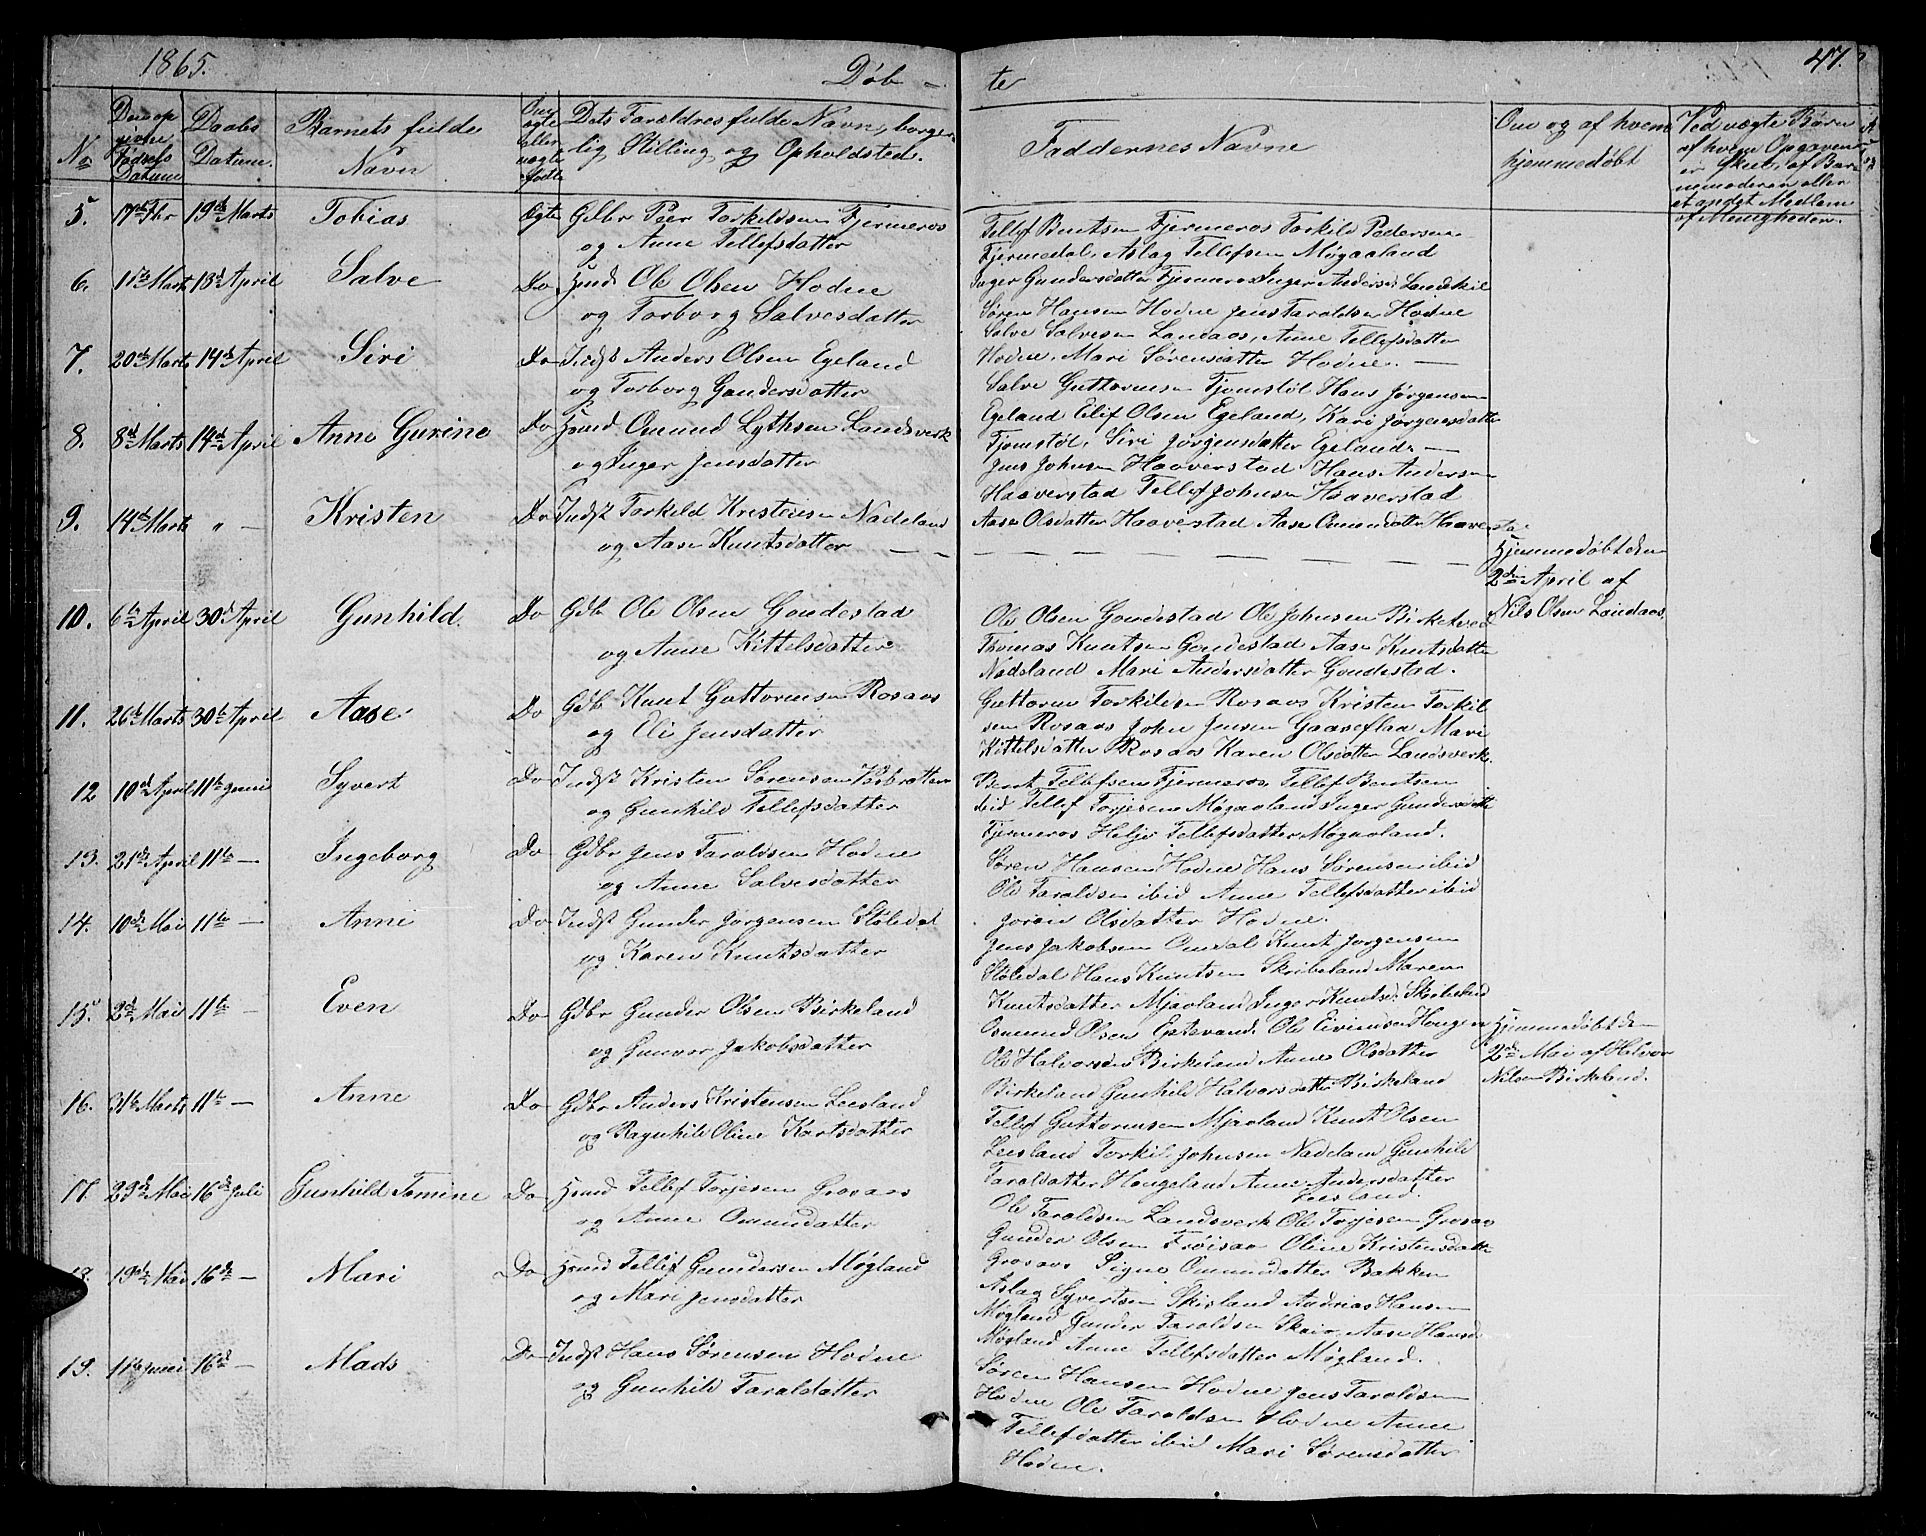 1865.
Døb -
te
47.
No
Den op
givne
Fødsels
Datum
Daabs
Datum.
Barnets fulde
Navn
Om
ægte
eller
uægte
født
Dets Forældres fulde Navn, borger-
lig Stilling og Opholdsted.
Faddernes Navne
Om og af hvem
hjemmedøbt
Ved uægte Børn
af hvem Opgaven
er skeet, af Bar-
nemoderen eller
et andet Medlem
af Menigheden.
5. 17de Fbr 19de Marts Tobias Ægte Gdbr Peer Torkildsen Fjermeros
og Anne Tellefsdatter
Tellef Bentsen Fjermeros Torkild Pedersen
Fjermedal, Aslag Tellefsen Møgaaland
Inger Gundersdatter Fjermeros Inger Andersd. Landskil
6. 11te Marts 13de April Salve Do Hmd Ole Olsen Hodne
og Torborg Salvesdatter
Søren Hansen Hodne Jens Taraldsen Hodne
Salve Salvesen Landaas, Anne Tellefsdatter
Hodne, Mari Sørensdatter Hodne.
7. 20de Marts 14de April Siri Do Indst Anders Olsen Egeland
og Torborg Gundersdatter
Salve Guttormsen Fjomstøl Hans Jørgensen
Egeland Eilif Olsen Egeland, Kari Jørgensdatter
Fjomstøl, Siri Jørgensdatter Egeland
8. 8de Marts 14de April Anne Gurine Do Hmd Omund Lythsen Landsverk
og Inger Jensdatter
Jens Johnsen Haaverstad Hans Andersen
Haaverstad Tellef Johnsen Haaverstad
Aase Olsdatter Haaverstad Aase Omundsdatter Haaverstad
9. 14de Marts " - Kristen Do Indst Torkild Kristensen Nadeland
og Aase Knutsdatter
Hjemmedøbt den
2den April af
Nils Olsen Landaas.
10. 6te April 30te April Gunhild. Do Gdb Ole Olsen Gondestad
og Anne Kittelsdatter
Ole Olsen Gondestad Ole Johnsen Birketved
Thomas Knutsen Gondestad Aase Knutsdatter
Nadeland Mari Andersdatter Gondestad.
11. 26de Marts 30te April Aase Do Gdb Knut Guttormsen Rosaas
og Eli Jensdatter
Guttorm Torkildsen Rosaas Kristen Torkil
sen Rosaas John Jensen Gaaseflaa Mari
Kittelsdatter Rosaas Karen Olsdatter Landsverk.
12 10de April 11te Juni Syvert Do Indst Kristen Sørensen
og Gunhild Tellefsdatter
Bent Tellefsen Fjermeros, Tellef Bentsen
ibid Tellef Torjesen Møgaaland Inger Gundersdatt
Fjermeros Helje Tellefsdatter Møgaaland.
13. 21de April 11te - Ingeborg Do Gdbr Jens Taraldsen Hodne
og Anne Salvesdatter
Søren Hansen Hodne Hans Sørensen ibid
Ole Taraldsen ibid Anne Tellefsdatter ibid
Joren Olsdatter Hodne.
14. 10de Mai 11te - Anne Do Indst Gunder Jørgensen Støledal
og Karen Knutsdatter
Jens Jakobsen Omdal Knut Jørgensen
Støledal Hans Knutsen Skribeland Maren
Knutsdatter Mjaaland, Inger Knutsd.
15. 2de Mai 11te - Even Do Gdbr Gunder Olsen Birkeland
og Gunvor Jakobsdatter
Osmund Olsen Ole Eivinsen Hougen
Ole Halvorsen Birkeland Anne Olsdatter
Birkeland Gunhild Halvorsdatter Birkeland
Hjemmedøbt den
2de Mai af Halvor
Nilsen Birkeland.
16. 31te Marts 11te - Anne Do Gdbr Anders Kristensen Leesland
og Ragnhild Oline Kortsdatter
Tellef Guttormsen Mjaaland Knut Olsen
Leesland Torkil Johnsen Nadelan Gunhild
Taraldsatter Hougeland Anne Andersdatter
Leesland.
17. 29de Mai 16de Juli Gunhild Tomine Do Hmd Tellef Torjesen Grosaas
og Anne Omundatter
Ole Taraldsen Landsverk Ole Torjesen Grosaas
Gunder Olsen Frøisaa Oline Kristensdatter
Grosaas Signe Omundatter Bakken
18. 19de Mai 16de - Mari Do Hmd Tellef Gundersen Møgland
og Mari Jensdatter
Aslag Syvertsen Skisland Andrias Hansen
Møgland Gunder Taraldsen Aase Hansd
Møgland Anne Tellefsdatter Møgland.
19. 11te Juni 16de - Mads Do Indst Hans Sørensen Hodne
og Gunhild Taraldatter
Søren Hansen Hodne Jens Taraldsen
Hodne Ole Taraldsen Hodne Anne
Tellefsdatter ibid Mari Sørensdatter
Hodne.